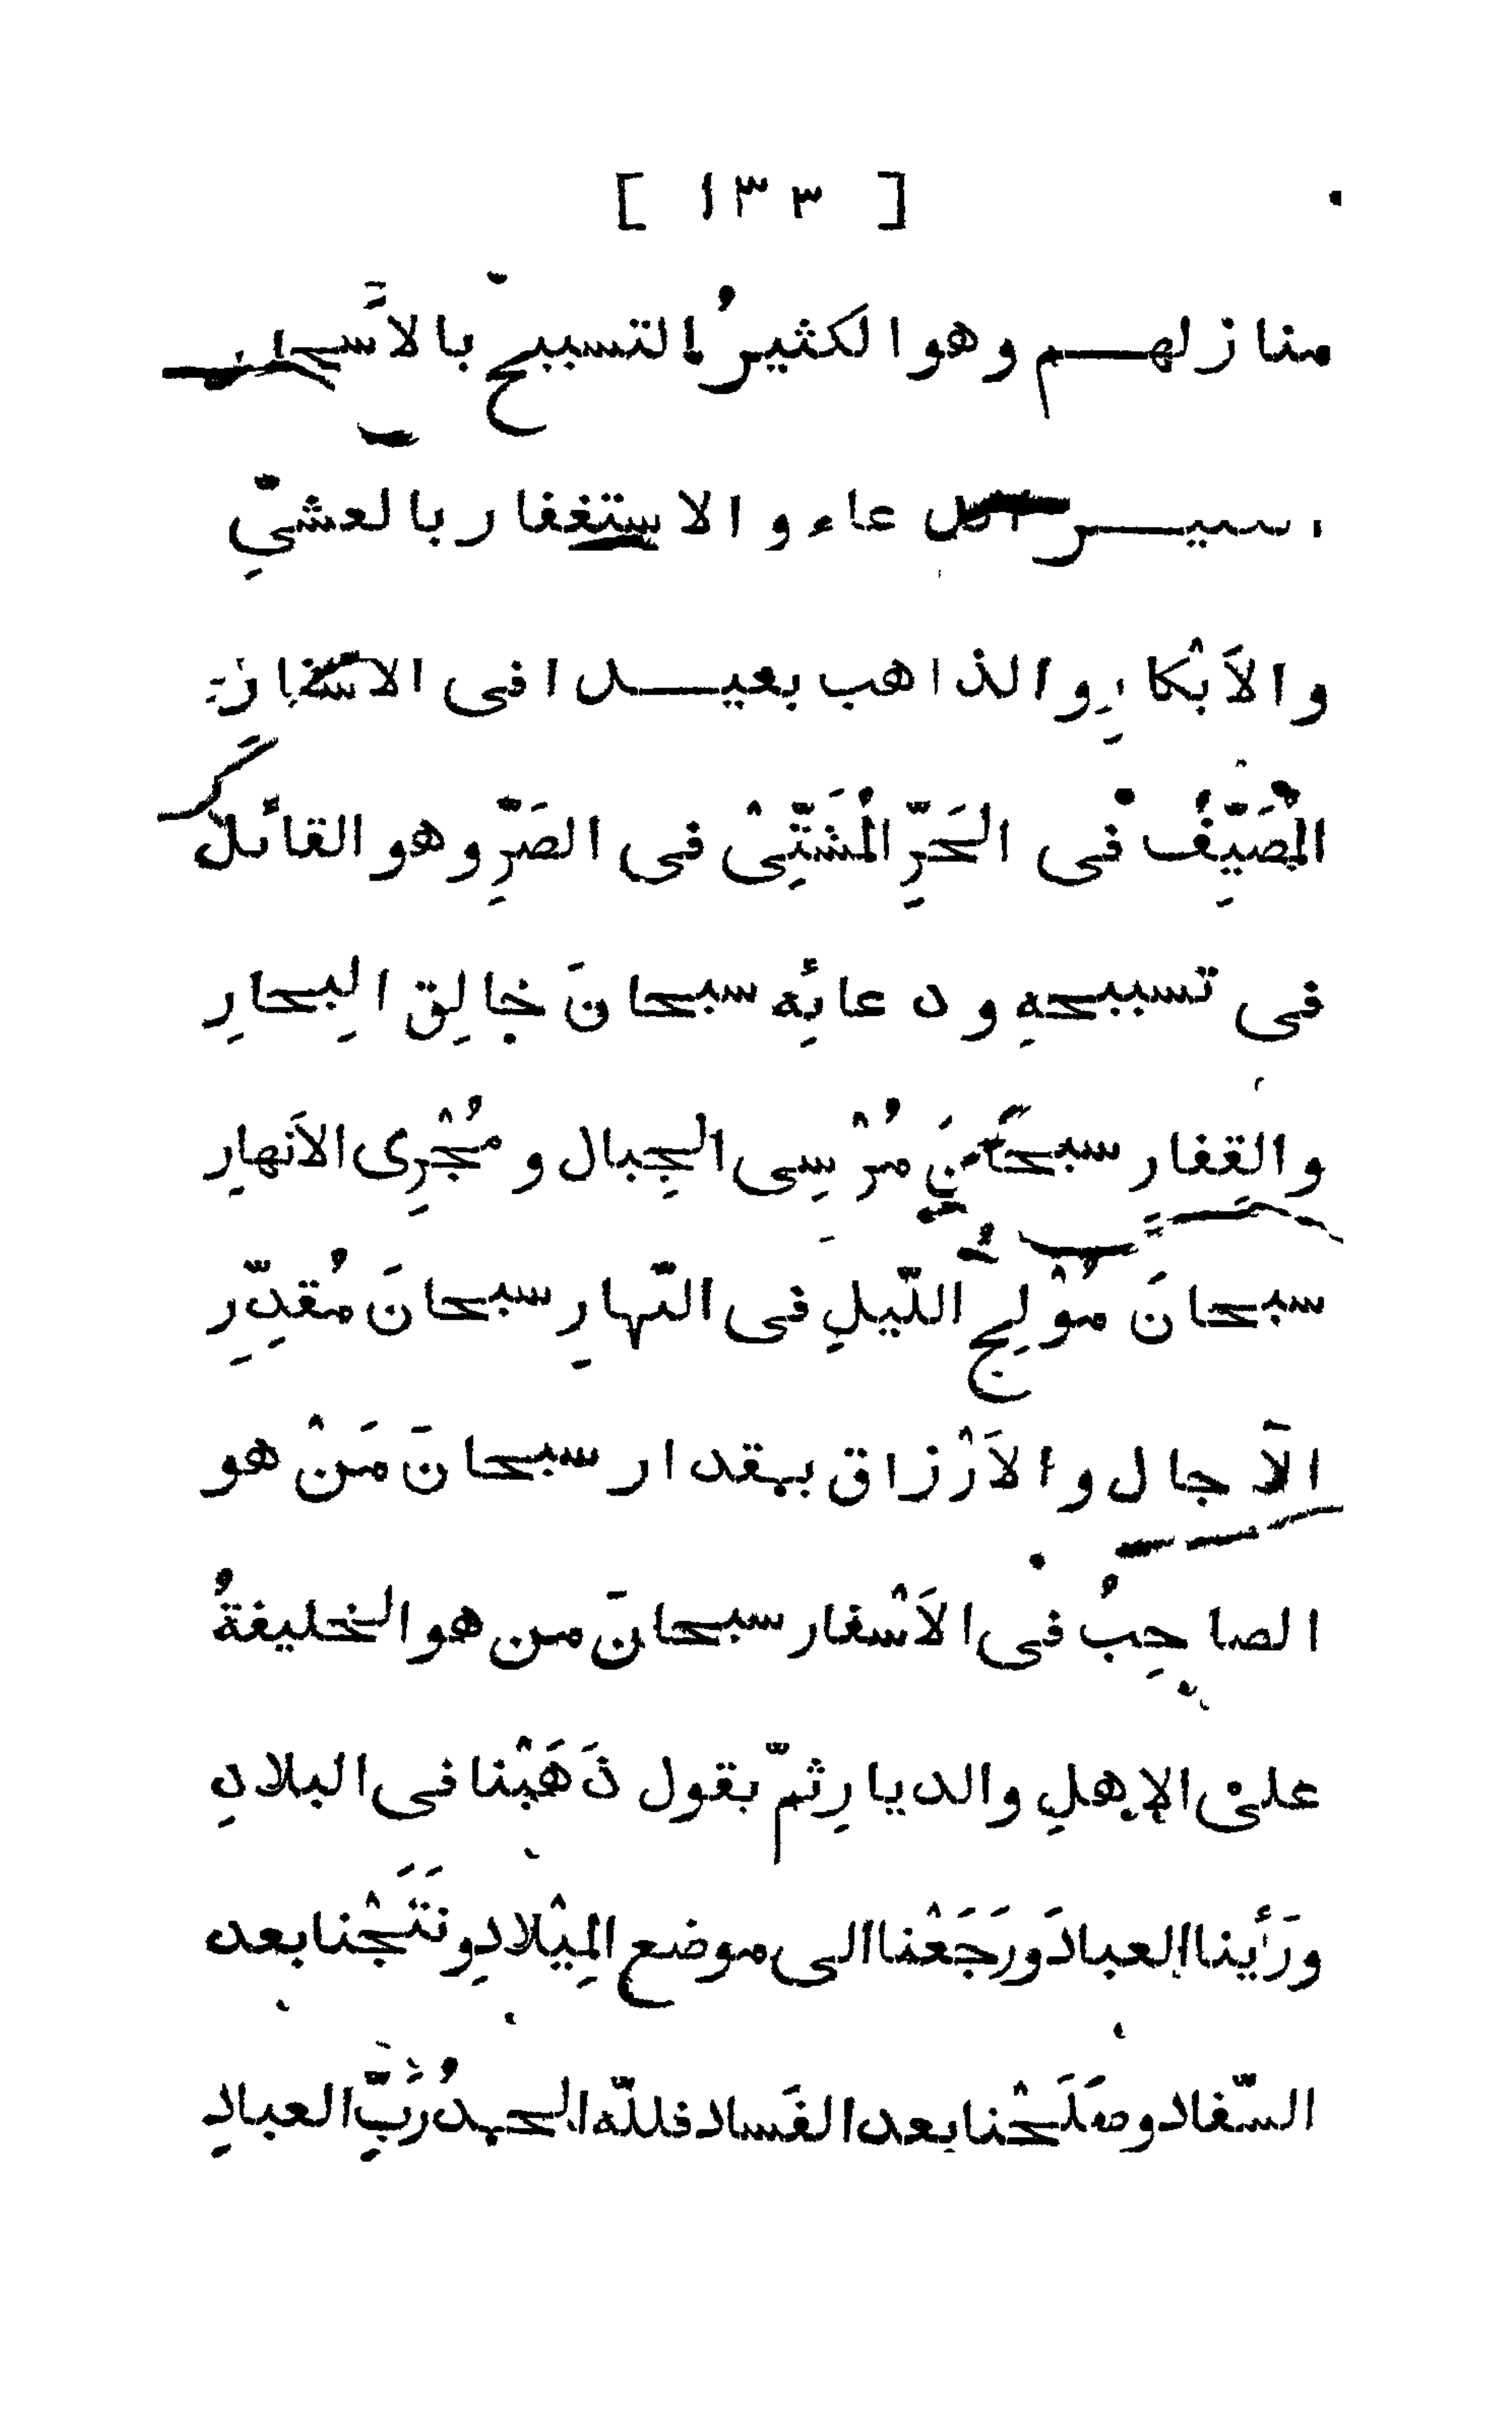 [ ١٣٣ ]
منازلهم وهو الكثيرُ التسبيح بالاَسحار
الدعاء والاستغفار بالعشيِّ
والاَبْكارِ والذاهب بعيدا فى الاسْفار
المُصَيِّفُ فى الحَرِّ المُشَتِّىْ فى الصَرِّ وهو القائل
فى تسبيحهِ ودعائِه سبحانَ خالِق البِحارِ
والقِفار سبحانَ مُرْسِى الجِبال ومُجْرِى الاَنهارِ
سبحانَ مُوْلِجِ اللّيلِ فى النّهارِ سبحانَ مُقدِّرِ
الآجال والاَرْزاق بمقدار سبحانَ مَنْ هو
الصاحِبُ فى الاَسْفار سبحانَ من هو الخليفةُ
علىْ الاهلِ والديارِ ثمّ يقول ذَهَبْنا فى البلادِ
ورَأَينا العبادَ ورَجَعْنا الى موضع المِيْلادِ ونَتَجْنا بعد
السّفاد وصَلَحْنا بعد الفَساد فللّه الحمدُ رَبِّ العبادِ